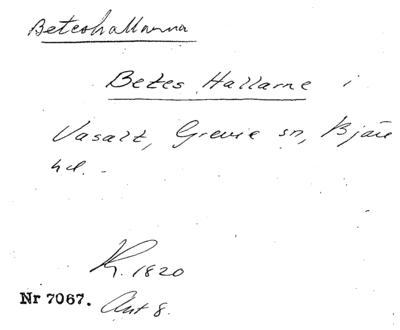 Beteshallarna
Betes Hallarne i
Vasalt, Grevie sn, Bjäre
hd.
K. 1820
Nr 7067. Ant 8.